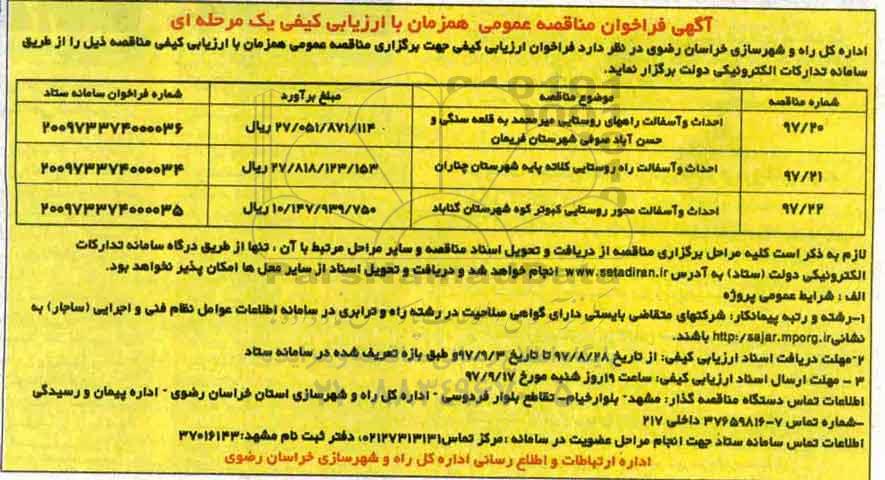 آگهی فراخوان مناقصه عمومی همزمان با ارزیابی کیفی یک مرحله ای
اداره کل راه و شهرسازی خراسان رضوی در نظر دارد فراخوان ارزیابی کیفی جهت برگزاری مناقصه عمومی همزمان با ارزیابی کیفی مناقصه ذیل را از طریق
سامانه تدارکات الکترونیکی دولت برگزار نماید.
شماره مناقصه موضوع مناقصه مبلغ برآورد شماره فراخوان سامانه ستاد
۹۷/۲۰ احداث وآسفالت راههای روستایی میرمحمد به قلعه سنگی و حسن آباد صوفی شهرستان فریمان ۲۷/۰۵۱/۸۷۱/۱۱۴ ریال ۲۰۰۹۷۳۳۷۴۰۰۰۰۳۶
۹۷/۲۱ احداث وآسفالت راه روستایی کلاته پایه شهرستان چناران ۲۷/۸۱۸/۱۲۳/۱۵۳ ریال ۲۰۰۹۷۳۳۷۴۰۰۰۰۳۴
۹۷/۲۲ احداث وآسفالت محور روستایی کبوتر کوه شهرستان گناباد ۱۰/۱۴۷/۹۳۹/۷۵۰ ریال ۲۰۰۹۷۳۳۷۴۰۰۰۰۳۵
لازم به ذکر است کلیه مراحل برگزاری مناقصه از دریافت و تحویل اسناد مناقصه و سایر مراحل مرتبط با آن ، تنها از طریق درگاه سامانه تدارکات
الکترونیکی دولت (ستاد) به آدرس www.setadiran.ir انجام خواهد شد و دریافت و تحویل اسناد از سایر محل ها امکان پذیر نخواهد بود.
الف : شرایط عمومی پروژه
۱-رشته و رتبه پیمانکار: شرکتهای متقاضی بایستی دارای گواهی صلاحیت در رشته راه و ترابری در سامانه اطلاعات عوامل نظام فنی و اجرایی (ساجار) به
نشانی http:/sajar.mporg.ir باشند.
۲-مهلت دریافت اسناد ارزیابی کیفی: از تاریخ ۹۷/۸/۲۸ تا تاریخ ۹۷/۹/۳و طبق بازه تعریف شده در سامانه ستاد
۳ - مهلت ارسال اسناد ارزیابی کیفی: ساعت ۱۹روز شنبه مورخ ۹۷/۹/۱۷
اطلاعات تماس دستگاه مناقصه گذار: مشهد- بلوارخیام- تقاطع بلوار فردوسی - اداره کل راه و شهرسازی استان خراسان رضوی - اداره پیمان و رسیدگی
-شماره تماس ۷-۳۷۶۵۹۸۱۶ داخلی ۲۱۷
اطلاعات تماس سامانه ستاد جهت انجام مراحل عضویت در سامانه :مرکز تماس۰۲۱۲۷۳۱۳۱۳۱، دفتر ثبت نام مشهد:۳۷۰۱۶۱۴۳
اداره ارتباطات و اطلاع رسانی اداره کل راه و شهرسازی خراسان رضوی
ParsNamadData